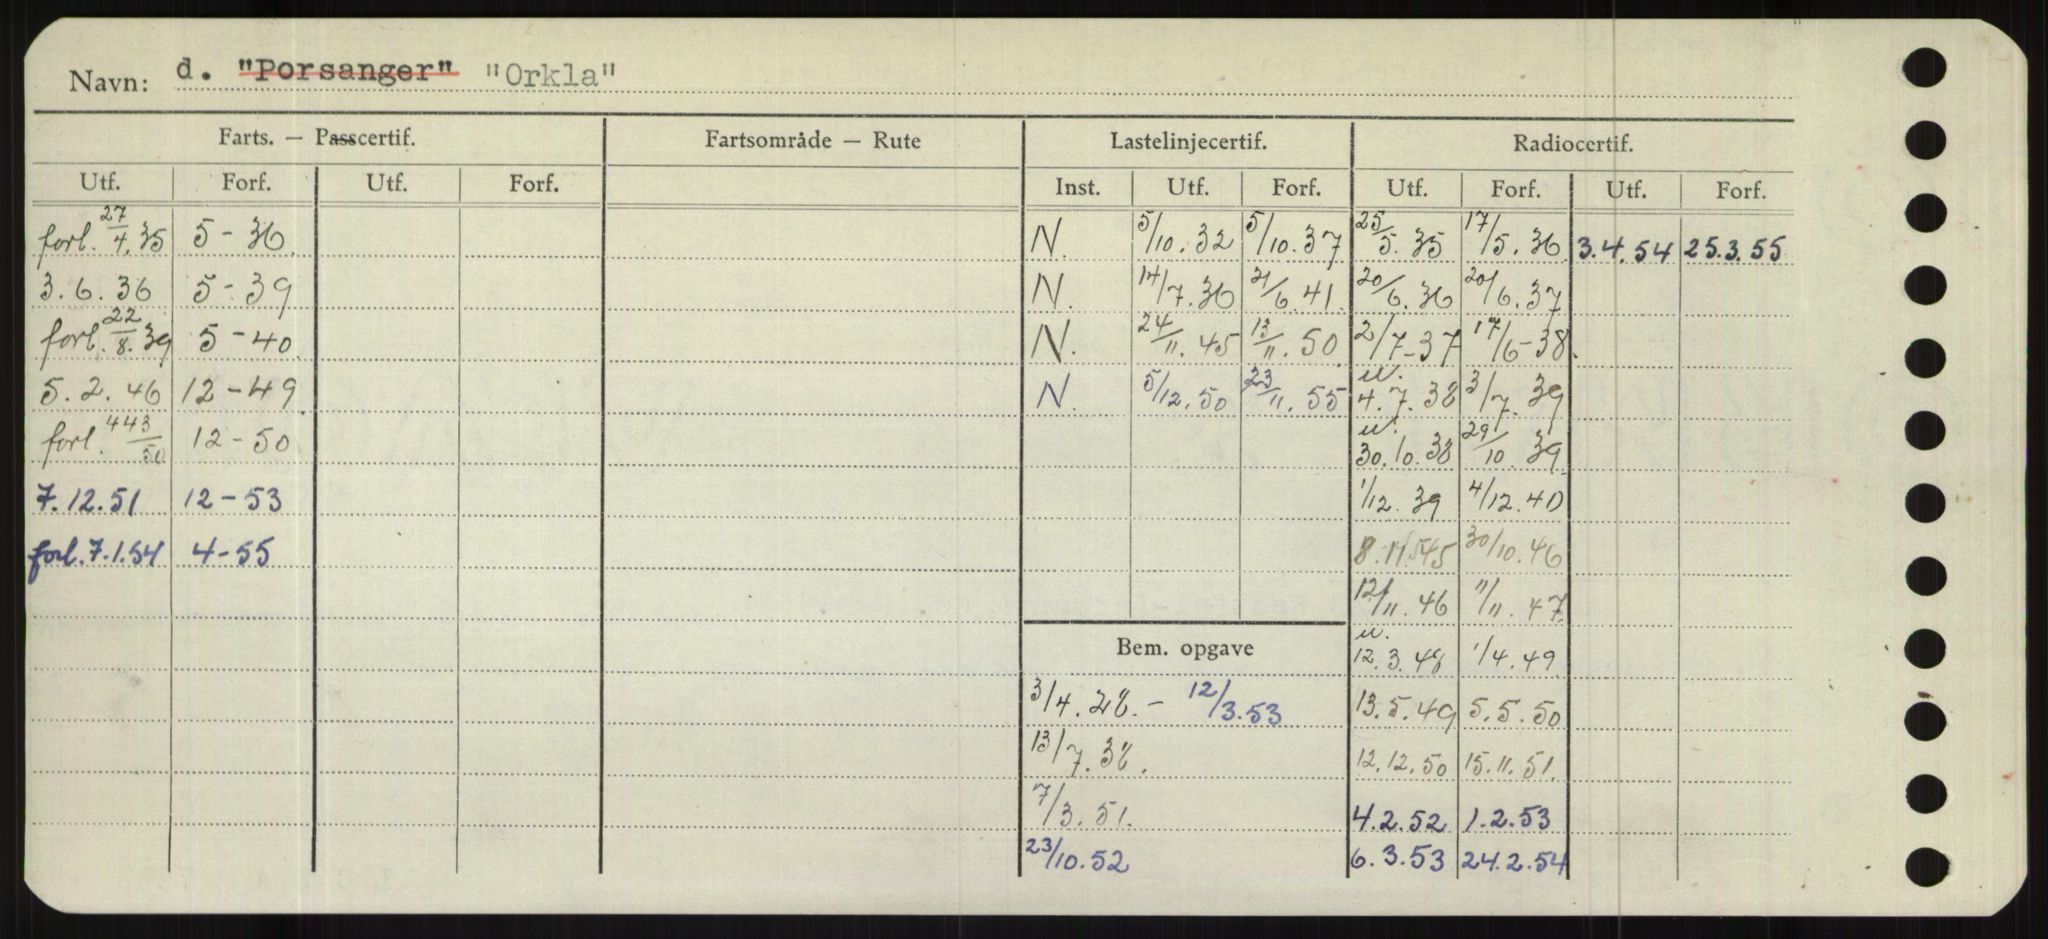 Navn: d. "Porsanger" "Orkla"
Farts. — Passcertif. Fartsområde — Rute Lastelinjecertif. Radiocertif.
Utf. Forf. Utf. Forf. Inst. Utf. Forf. Utf. Forf. Utf. Forf.
forl. 27/4.35 5-36. N. 5/10.32 5/10.37 25/5.35 17/5.36 3.4.54 25.3.55
3.6.36 5-39 N. 14/7.36 21/6.41. 20/6.36 20/6.37
forl. 22/8.39 5-40 N. 24/11.45 13/11.50 2/7-37 17/6-38.
5.2.46 12-49 N. 5/12.50 23/11.55 u. 4.7.38 3/7.39
forl. 443/50 12-50 u. 30.10.38 29/10.39
7.12.51 12-53 1/12.39 4/12.40
forl. 7.1.54 4-55 8.11.45 30/10.46
12/11.46 11/11.47
Bem. opgave u. 12.3.48 1/4.49
3/4.28. - 12/3.53 13.5.49 5.5.50
13/7.38. 12.12.50 15.11.51.
7/3.51. 4.2.52 1.2.53
23/10.52 6.3.53 24.2.54